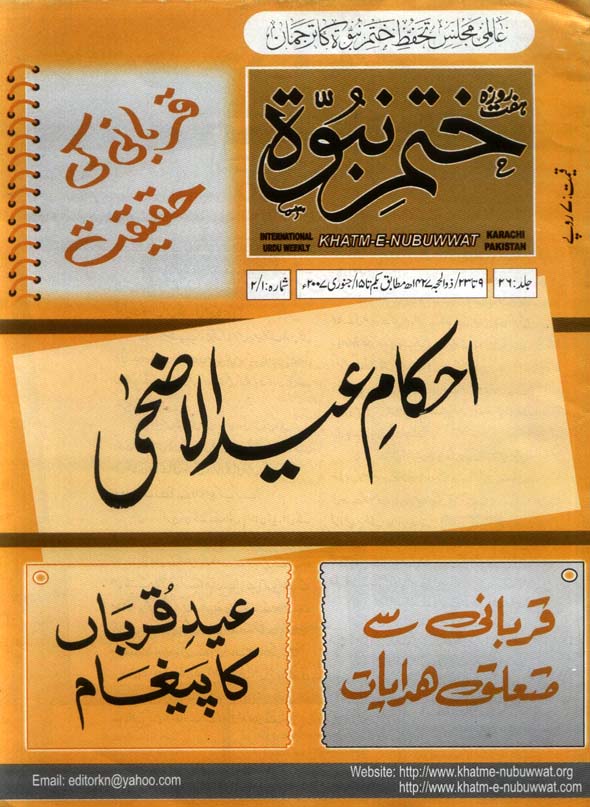 عالمی مجلس تحفظ ختم نبوۃ کا ترجمان
ہفت روزہ
ختم نبوۃ
INTERNATIONAL
URDU WEEKLY
KHATM-E-NUBUWWAT
KARACHI
PAKISTAN
قیمت: ۷ روپے
قربانی کی
حقیقت
جلد: ۲۶
۹ تا ۲۳/ذوالحجہ ۱۴۲۷ھ مطابق یکم تا ۱۵/جنوری ۲۰۰۷ء
شمارہ: ۲/۱
احکامِ عید الاضحیٰ
قربانی سے
متعلق ھدایات
عیدِ قُرباں
کا پیغام
Email: editorkn@yahoo.com
Website: http://www.khatme-nubuwwat.org
http://www.khatm-e-nubuwwat.com